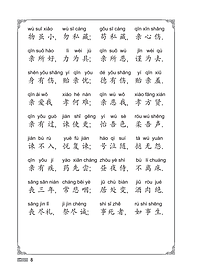 wù suī xiǎo wù sī cáng gǒu sī cáng qīn xīn shāng
物虽小,勿私藏;苟私藏,亲心伤。
qīn suǒ hào lì wèi jù qīn suǒ wù jǐn wèi qù
亲所好,力为具;亲所恶,谨为去。
shēn yǒu shāng yí qīn yōu dé yǒu shāng yí qīn xiū
身有伤,贻亲忧;德有伤,贻亲羞。
qīn ài wǒ xiào hé nán qīn wù wǒ xiào fāng xián
亲爱我,孝何难;亲恶我,孝方贤。
qīn yǒu guò jiàn shǐ gēng yí wú sè róu wú shēng
亲有过,谏使更;怡吾色,柔吾声。
jiàn bú rù yuè fù jiàn háo qì suí tà wú yuàn
谏不入,悦复谏;号泣随,挞无怨。
qīn yǒu jí yào xiān cháng zhòu yè shì bù lí chuáng
亲有疾,药先尝;昼夜侍,不离床。
sāng sān nián cháng bēi yè jū chù biàn jiǔ ròu jué
丧三年,常悲咽;居处变,酒肉绝。
sāng jìn lǐ jì jìn chéng shì sǐ zhě rú shì shēng
丧尽礼,祭尽诚;事死者,如事生。
8